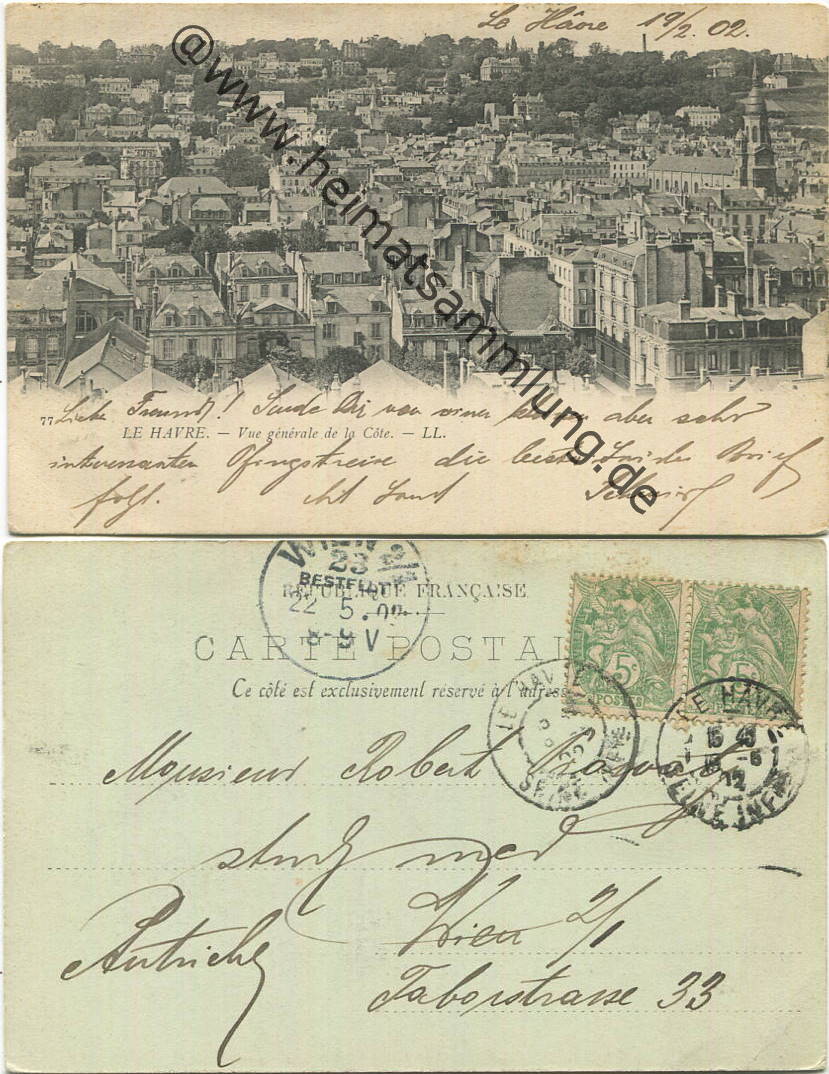 Le Hâvre 19/2. 02.
@www.heimatsammlung.de
77
Liebe Freund! Sende Dir von einer kurzen aber sehr
LE HAVRE. — Vue générale de la Côte. — LL.
interessanten Pfingstreise die besten Grüße Brief
folgt.
WIEN 2/1
23
BESTELLT
22 5.02
8-9 V
RÉPUBLIQUE FRANÇAISE
CARTE POSTALE
Ce côté est exclusivement réservé à l'adresse
5c
POSTES
LE HAVRE
SEINE INFRE
LE HAVRE
15 45
SEINE INFRE
Monsieur Robert
stud med
Wien 2/1
Autriche
Taborstrasse 33